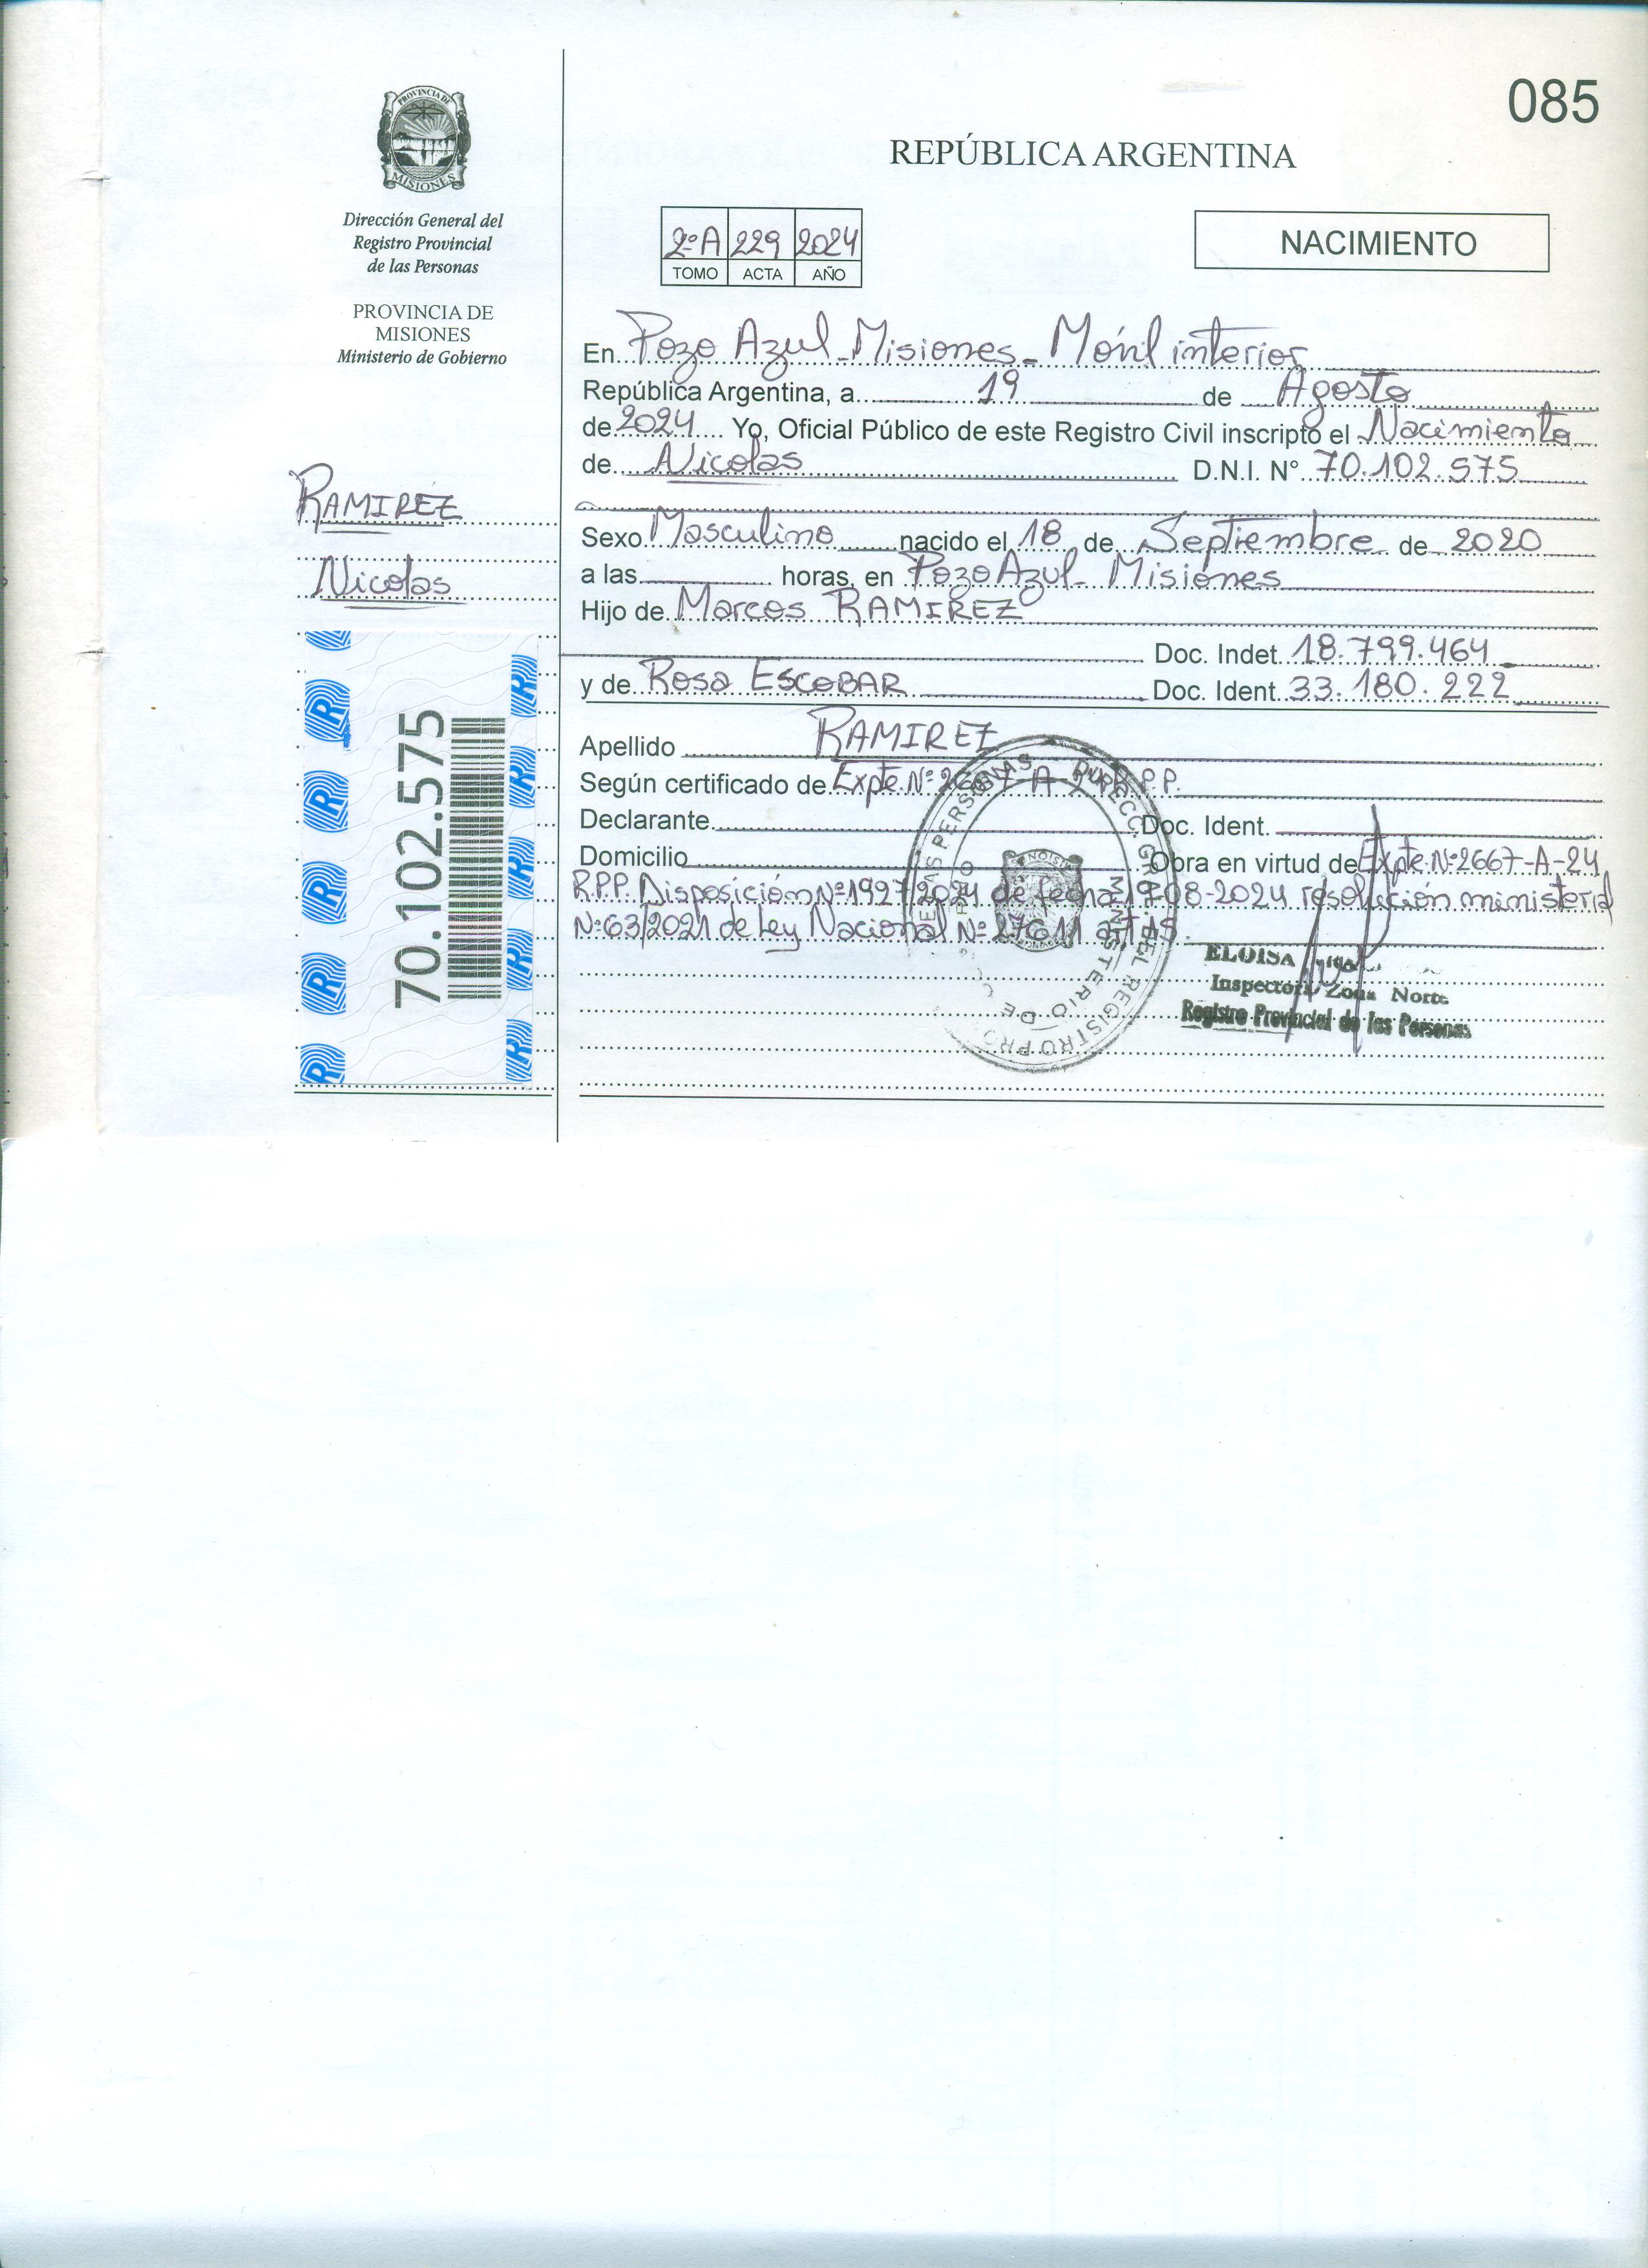 085
PROVINCIA DE
MISIONES
Dirección General del
Registro Provincial
de las Personas
PROVINCIA DE
MISIONES
Ministerio de Gobierno
RAMIREZ
Nicolas
70.102.575
REPÚBLICA ARGENTINA
2ºA 229 2024
TOMO ACTA AÑO
NACIMIENTO
En Pozo Azul - Misiones - Móvil interior
República Argentina, a 19 de Agosto
de 2024 Yo, Oficial Público de este Registro Civil inscripto el Nacimiento
de Nicolas D.N.I. N° 70.102.575
Sexo Masculino nacido el 18 de Septiembre de 2020
a las horas, en Pozo Azul - Misiones
Hijo de Marcos RAMIREZ
Doc. Indet 18.799.464
y de Rosa ESCOBAR Doc. Ident. 33.180.222
Apellido RAMIREZ
Según certificado de Expte Nº 2667-A-24 R.P.P.
Declarante Doc. Ident.
Domicilio Obra en virtud de Expte Nº 2667-A-24
R.P.P. Disposición Nº 1997/2024 de fecha 19-08-2024 resolución ministerial
Nº 63/2021 de Ley Nacional Nº 27611 art 15.
ELOISA
Inspectora Zona Norte
Registro Provincial de las Personas